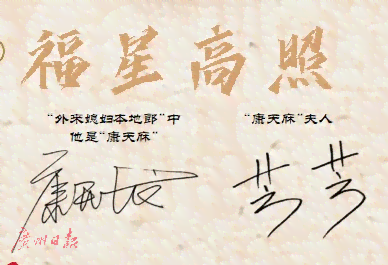 福星高照
“外来媳妇本地郎”中
他是“康天庥”
“康天庥”夫人
芳芳
广州日报